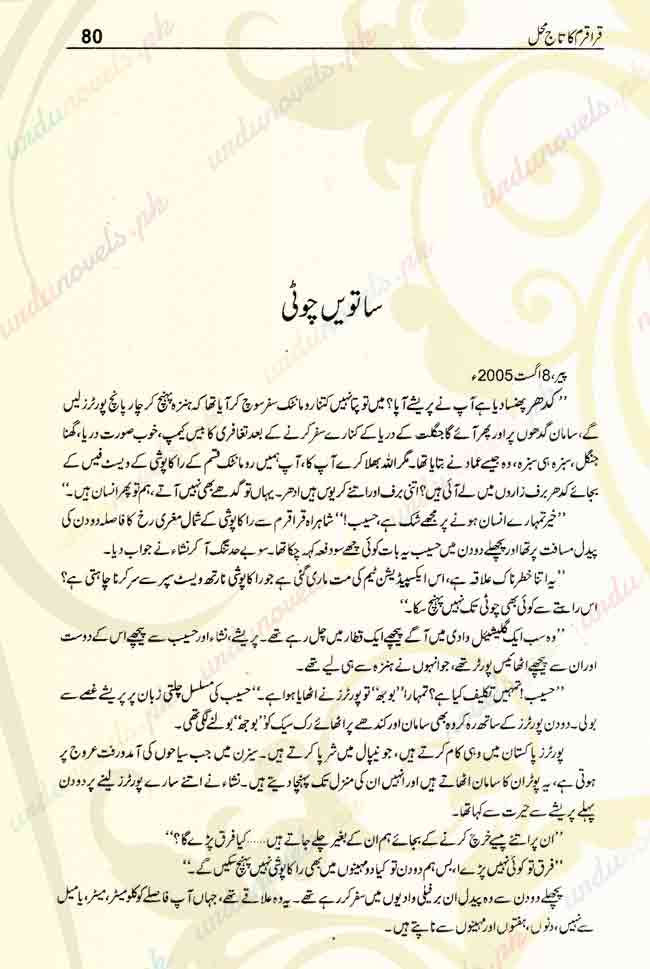 80
قراقرم کا تاج محل
ساتویں چوٹی
پیر، 8 اگست 2005ء
’’کدھر پھنسا دیا ہے آپ نے پریشے آپا؟ میں تو پتا نہیں کتنا رومانٹک سفر سوچ کر آیا تھا کہ ہنزہ پہنچ کر چار پانچ پورٹرز لیں
گے، سامان گدھوں پر اور پھر آئے گا جنگلت کے دریا کے کنارے سفر کرنے کے بعد تغافری کا بیس کیمپ، خوب صورت دریا، گھنا
جنگل، سبزہ ہی سبزہ، وہ جیسے عماد نے بتایا تھا۔ مگر اللہ بھلا کرے آپ کا، آپ ہمیں رومانٹک قسم کے راکاپوشی کے ویسٹ فیس کے
بجائے کدھر برف زاروں میں لے آئی ہیں؟ اتنی برف اور اتنے کریوس ہیں ادھر۔ یہاں تو گدھے بھی نہیں آتے، ہم تو پھر انسان ہیں۔‘‘
’’خیر تمہارے انسان ہونے پر مجھے شک ہے، حسیب!‘‘ شاہراہ قراقرم سے راکاپوشی کے شمال مغربی رخ کا فاصلہ دو دن کی
پیدل مسافت پر تھا اور پچھلے دو دن میں حسیب یہ بات کوئی چھے سو دفعہ کہہ چکا تھا۔ سو بے حد تنگ آ کر نشاء نے جواب دیا۔
’’یہ اتنا خطرناک علاقہ ہے، اس ایکسپیڈیشن ٹیم کی مت ماری گئی ہے جو راکاپوشی نارتھ ویسٹ سپر سے سر کرنا چاہتی ہے؟
اس راستے سے کوئی بھی چوٹی تک نہیں پہنچ سکا۔‘‘
’’وہ سب ایک گلیشئیل وادی میں آگے پیچھے ایک قطار میں چل رہے تھے۔ پریشے، نشاء اور حسیب سے پیچھے اس کے دوست
اور ان سے پیچھے اٹھائیس پورٹر تھے، جو انہوں نے ہنزہ سے ہی لیے تھے۔
’’حسیب! تمہیں تکلیف کیا ہے؟ تمہارا ’’بوجھ‘‘ تو پورٹرز نے اٹھایا ہوا ہے۔‘‘ حسیب کی مسلسل چلتی زبان پر پریشے غصے سے
بولی۔ دو دن پورٹرز کے ساتھ رہ کر وہ بھی سامان اور کندھے پر اٹھائے رک سیک کو ’’بوجھ‘‘ بولنے لگی تھی۔
پورٹرز پاکستان میں وہی کام کرتے ہیں، جو نیپال میں شرپا کرتے ہیں۔ سیزن میں جب سیاحوں کی آمدورفت عروج پر
ہوتی ہے، یہ پورٹران کا سامان اٹھاتے ہیں اور انہیں ان کی منزل تک پہنچا دیتے ہیں۔ نشاء نے اتنے سارے پورٹرز لینے پر دو دن
پہلے پریشے سے حیرت سے کہا تھا۔
’’ان پر اتنے پیسے خرچ کرنے کے بجائے ہم ان کے بغیر چلے جاتے ہیں......کیا فرق پڑے گا؟‘‘
’’فرق تو کوئی نہیں پڑے ا، بس ہم دو دن تو کیا دو مہینوں میں بھی راکاپوشی نہیں پہنچ سکیں گے۔‘‘
پچھلے دو دن سے وہ پیدل ان برفیلی وادیوں میں سفر کر رہے تھے۔ یہ وہ علاقے تھے، جہاں آپ فاصلے کو کلومیٹر، میٹر، یا میل
سے نہیں، دنوں، ہفتوں اور مہینوں سے ناپتے ہیں۔
urdunovels.pk